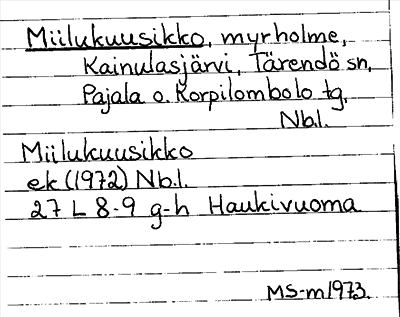 Miilukuusikko, myrholme,
Kainulasjärvi, Tärendö sn,
Pajala o. Korpilombolo tg,
Nb.l.
Miilukuusikko
ek (1972) Nb.l.
27 L 8-9 g-h Haukivuoma
MS-m1973.